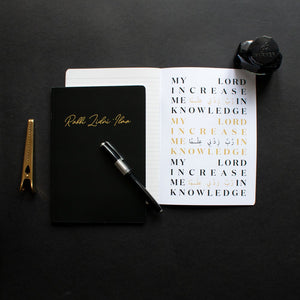 Rabbi Zidni Ilma
MY LORD
INCREASE
ME رَّبِّ زِدْنِي عِلْمًا IN
KNOWLEDGE
MY LORD
INCREASE
ME رَّبِّ زِدْنِي عِلْمًا IN
KNOWLEDGE
MY LORD
INCREASE
ME رَّبِّ زِدْنِي عِلْمًا IN
KNOWLEDGE